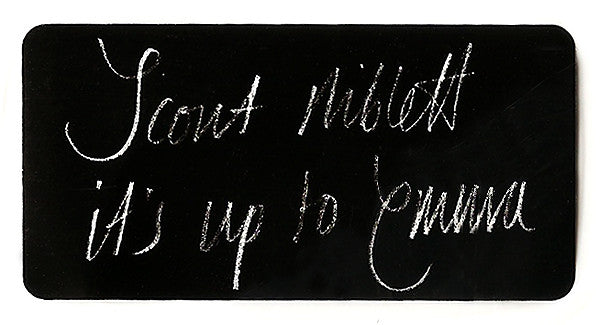 Scout Niblett
it's up to Emma